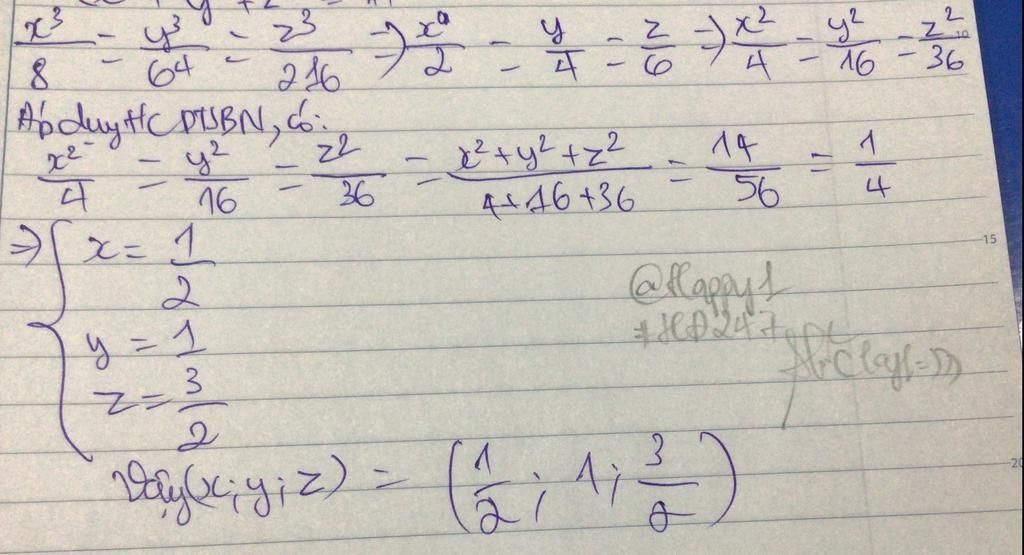 x³/8 = y³/64 = z³/216 ⇒ x/2 = y/4 = z/6 ⇒ x²/4 = y²/16 = z²/36
Áp dụng TC DTSBN, có:
x²/4 = y²/16 = z²/36 = x²+y²+z²/4+16+36 = 14/56 = 1/4
⇒ { x = 1/2
y = 1
z = 3/2
@Happy1
#HD247
Vậy (x;y;z) = (1/2; 1; 3/2)